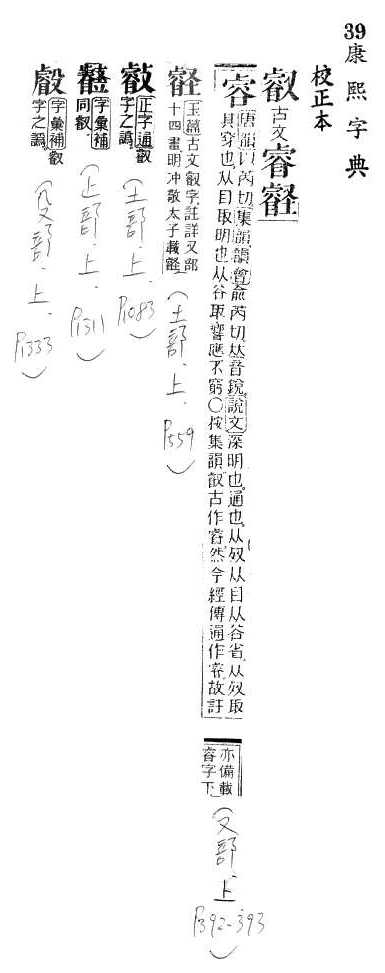 39 康熙字典
校正本
叡 古文 睿 壡
容 唐韻以芮切集韻韻會兪芮切𠀤音銳說文深明也通也从𣦼从目从谷省从𣦼取
其穿也从目取明也从谷取響應不窮○按集韻叡古作睿然今經傳通作睿故註
亦備載
睿字下
(又部.上 P392-393)
壡 玉篇古文叡字註詳又部
十四畫明沖敬太子載壡
(土部.上.P559)
正字通叡
字之譌
(王部.上.P1083)
字彙補
同叡
(止部.上.P1311)
字彙補叡
字之譌
(殳部.上.P1333)